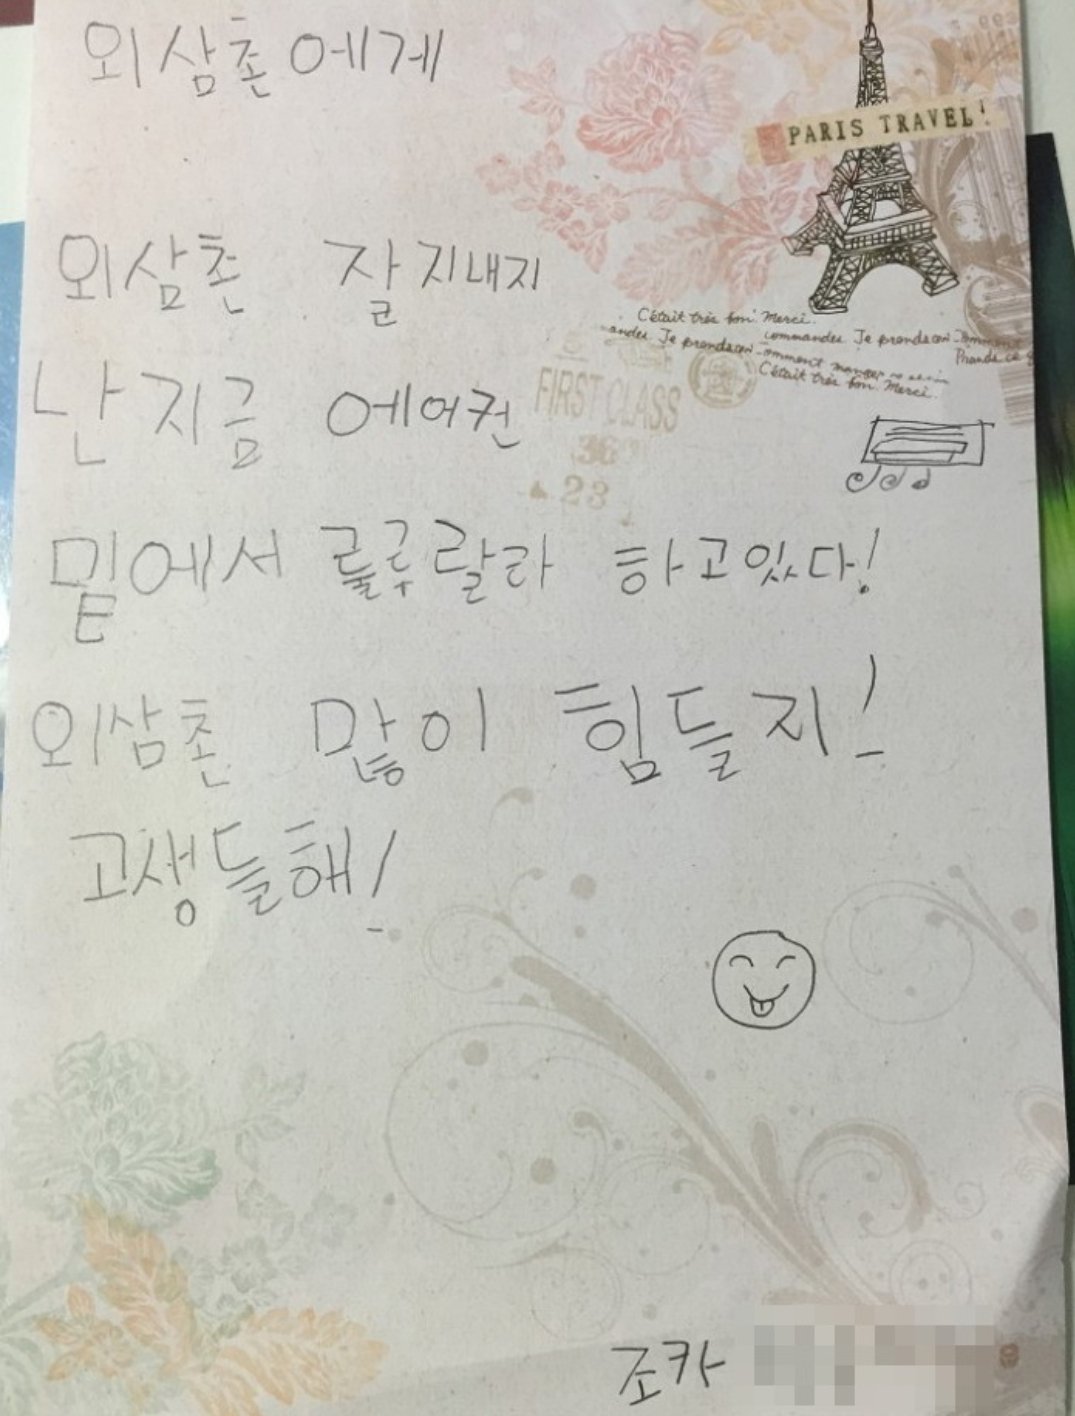 외삼촌에게
PARIS TRAVEL!
외삼촌 잘지내지
C'était très bon. Merci.
commandes. Je prends
andes. Je prends
comment manger
C'était très bon. Merci.
난지금 에어컨
FIRST CLASS
36
23
밑에서 룰루랄라 하고있다!
외삼촌 많이 힘들지!
고생들해!
조카